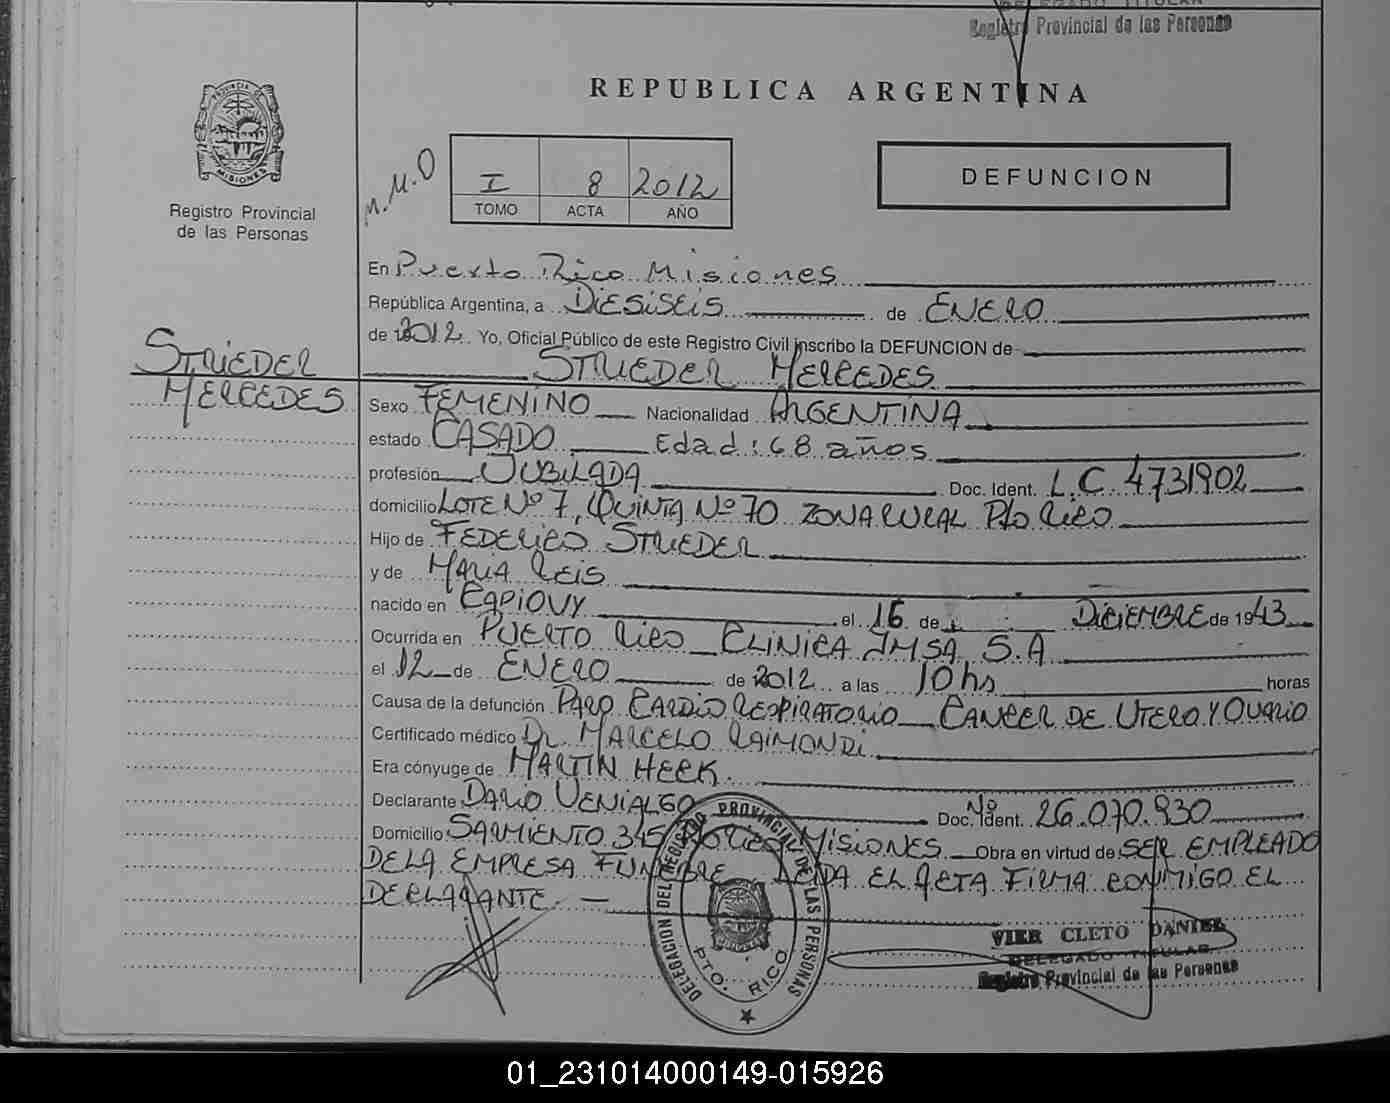 DELEGADO TITULAR
Registro Provincial de las Personas
REPUBLICA ARGENTINA
PROVINCIA DE
MISIONES
Registro Provincial
de las Personas
M.M.O
I 8 2012
TOMO ACTA AÑO
DEFUNCION
En Puerto Rico Misiones
República Argentina, a DIESISEIS de ENERO
de 2012. Yo, Oficial Público de este Registro Civil inscribo la DEFUNCION de
STRIEDER MERCEDES
STRIEDER
MERCEDES
Sexo FEMENINO Nacionalidad ARGENTINA
estado CASADO Edad: 68 años
profesión JUBILADA Doc. Ident. L.C 4731902
domicilio LOTE Nº 7, QUINTA Nº 70 ZONA RURAL Pto RICO
Hijo de FEDERICO STRIEDER
y de MARIA REIS
nacido en CAPIOVY el 16 de DICIEMBRE de 1943
Ocurrida en PUERTO RICO CLINICA IMSA S.A
el 12 de ENERO de 2012 a las 10 hs horas
Causa de la defunción PARO CARDIO RESPIRATORIO CANCER DE UTERO Y OVARIO
Certificado médico Dr. MARCELO RAIMONDI
Era cónyuge de MARTIN HECK.
Declarante DARIO VENIALGO Doc. Ident. Nº 26.070.930
Domicilio SARMIENTO 345 Pto RICO MISIONES Obra en virtud de SER EMPLEADO
DE LA EMPRESA FUNEBRE LEIDA EL ACTA FIRMA CONMIGO EL
DECLARANTE.
DELEGACION DEL REGISTRO PROVINCIAL DE LAS PERSONAS
PTO. RICO
VIER CLETO DANIEL
DELEGADO TITULAR
Registro Provincial de las Personas
01_231014000149-015926